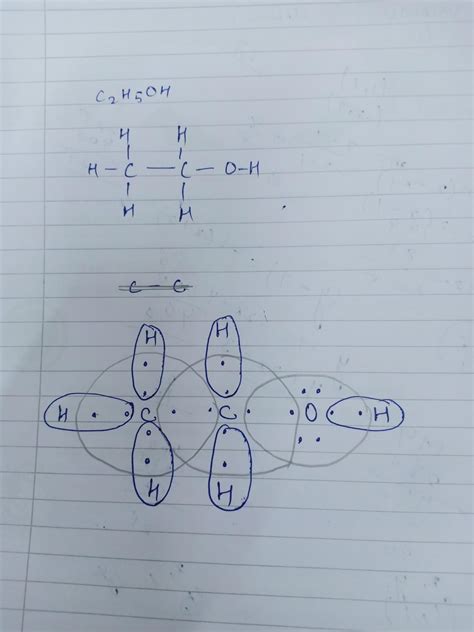 C₂H₅OH
H H
H - C - C - O - H
H H
C - C
H H
H C C O H
H H